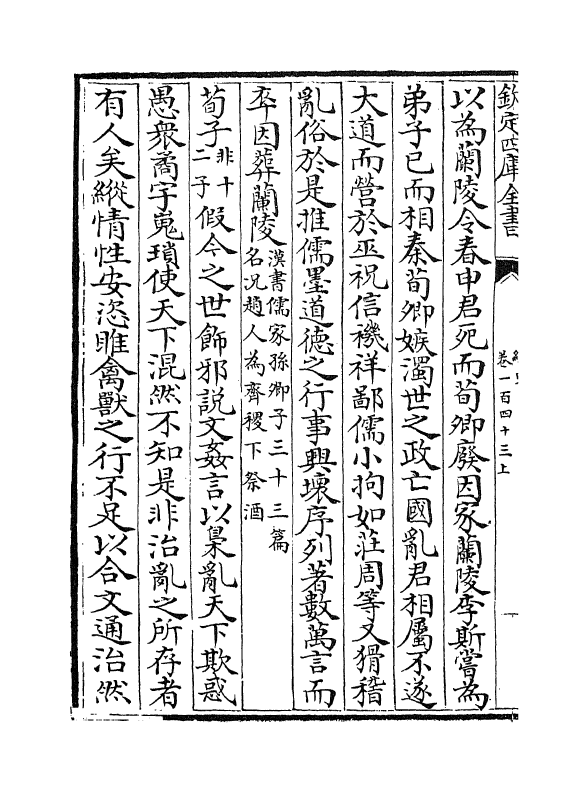 欽定四庫全書
繹史
卷一百四十三上
以為蘭陵令春申君死而荀卿廢因家蘭陵李斯嘗為
弟子已而相秦荀卿嫉濁世之政亡國亂君相屬不遂
大道而營於巫祝信禨祥鄙儒小拘如莊周等又猾稽
亂俗於是推儒墨道德之行事興壞序列著數萬言而
卒因葬蘭陵漢書儒家孫卿子三十三篇
名况趙人為齊稷下祭酒
荀子非十
二子假今之世飾邪說文姦言以梟亂天下欺惑
愚衆矞宇嵬瑣使天下混然不知是非治亂之所存者
有人矣縱情性安恣睢禽獸之行不足以合文通治然